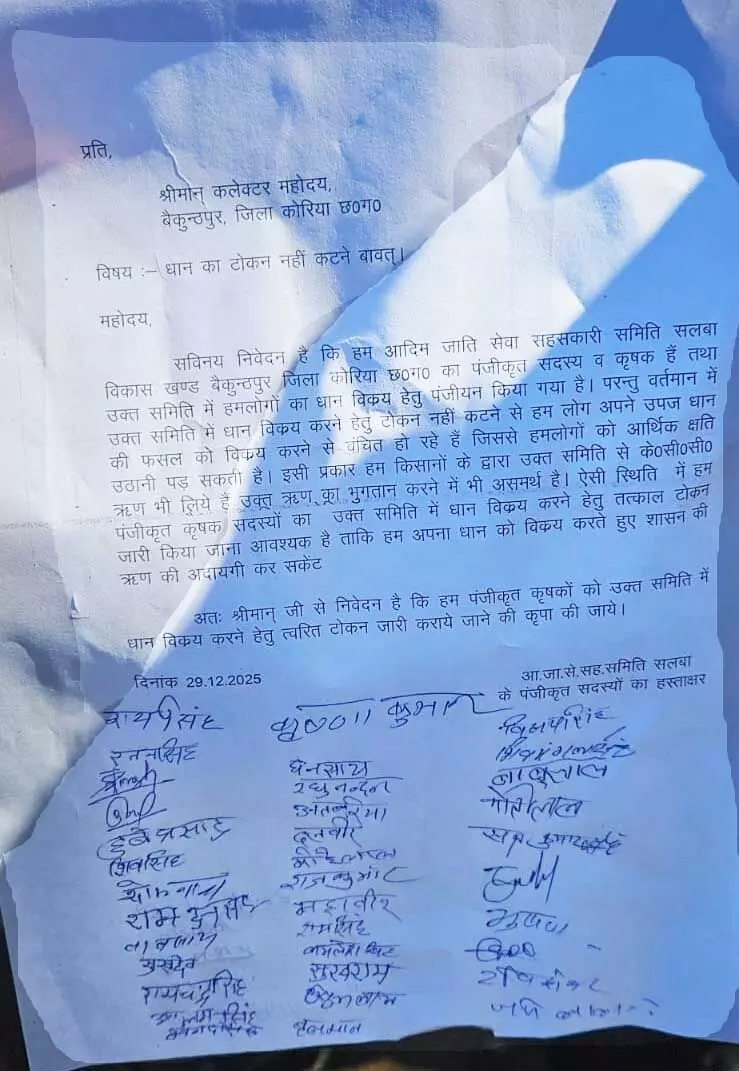 प्रति,
श्रीमान् कलेक्टर महोदय,
बैकुन्ठपुर, जिला कोरिया छ०ग०
विषय :– धान का टोकन नहीं कटने बावत्।
महोदय,
सविनय निवेदन है कि हम आदिम जाति सेवा सहसकारी समिति सलबा
विकास खण्ड बैकुन्ठपुर जिला कोरिया छ०ग० का पंजीकृत सदस्य व कृषक हैं तथा
उक्त समिति में हमलोगों का धान विकय हेतु पंजीयन किया गया है। परन्तु वर्तमान में
उक्त समिति में धान विकय करने हेतु टोकन नहीं कटने से हम लोग अपने उपज धान
की फसल को विकय करने से वंचित हो रहे हैं जिससे हमलोगों को आर्थिक क्षति
उठानी पड़ सकती है। इसी प्रकार हम किसानों के द्वारा उक्त समिति से के०सी०सी०
ऋण भी लिये हैं उक्त ऋण का भुगतान करने में भी असमर्थ है। ऐसी स्थिति में हम
पंजीकृत कृषक सदस्यों का उक्त समिति में धान विकय करने हेतु तत्काल टोकन
जारी किया जाना आवश्यक है ताकि हम अपना धान को विकय करते हुए शासन की
ऋण की अदायगी कर सकेंट
अतः श्रीमान् जी से निवेदन है कि हम पंजीकृत कृषकों को उक्त समिति में
धान विकय करने हेतु त्वरित टोकन जारी कराये जाने की कृपा की जाये।
दिनांक 29.12.2025
आ.जा.से.सह.समिति सलबा
के पंजीकृत सदस्यों का हस्ताक्षर
कृष्णा कुमार
रतनसिंह
धनसाय
बाबूलाल
रघुनन्दन
मोतीलाल
दलबीर
शिवसिंह
राजकुमार
महावीर
रामसिंह
सुखदेव
सुखराम
रामचन्द्रसिंह
हनुमान